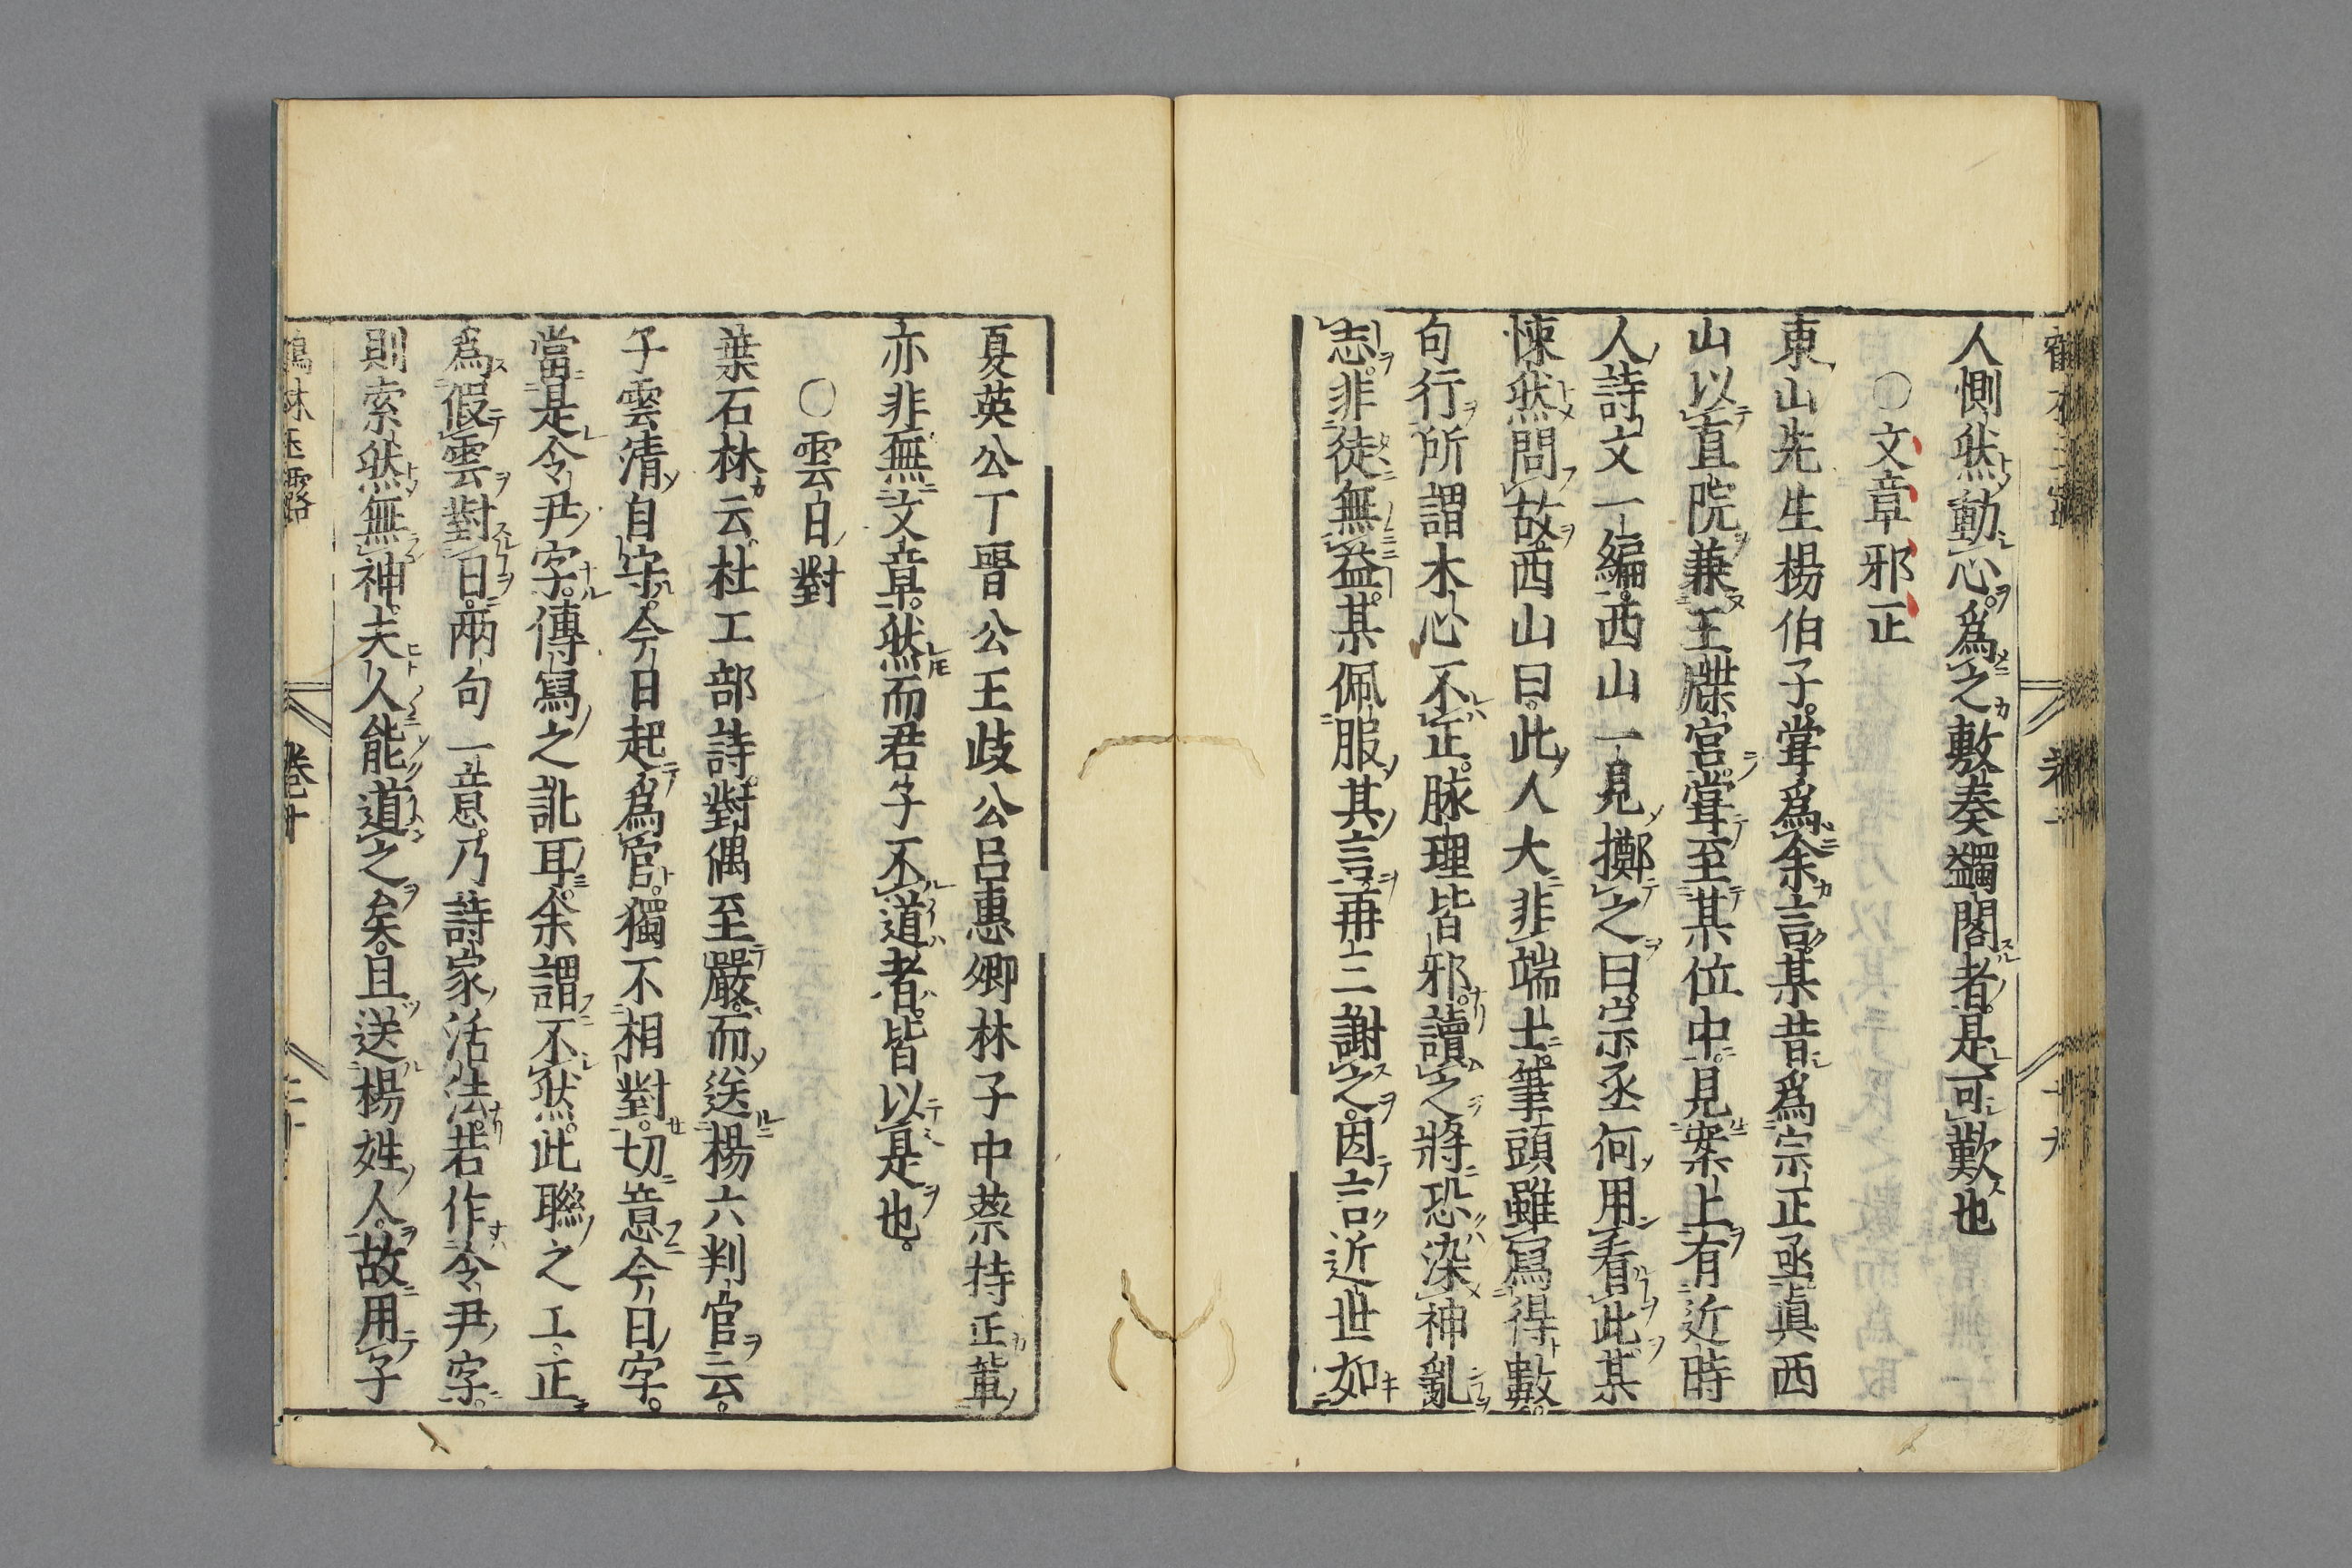 人惻然動心爲之敷奏蠲閣者是可歎也
○文章邪正
東山先生楊伯子嘗爲余言某昔爲宗正丞眞西
山以直院兼玉牒宮嘗至某位中見案上有近時
人詩文一編西山一見擲之曰宗丞何用看此某
悚然問故西山曰此人大非端士筆頭雖寫得數
句行所謂木心不正脉理皆邪讀之將恐染神亂
志非徒無益某佩服其言再三謝之因言近世如
夏英公丁晉公王歧公呂惠卿林子中蔡持正輩
亦非無文章然而君子不道者皆以是也
○雲日對
葉石林云杜工部詩對偶至嚴而送楊六判官云
子雲清自守今日起爲官獨不相對切意今日字
當是令尹字傳寫之訛耳余謂不然此聯之工正
爲假雲對日兩句一意乃詩家活法若作令尹字
則索然無神夫人能道之矣且送楊姓人故用子
鶴林玉露 卷十